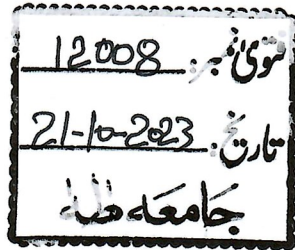 فتویٰ نمبر: 12008
تاریخ: 21-10-2023
جامعه هٰذا